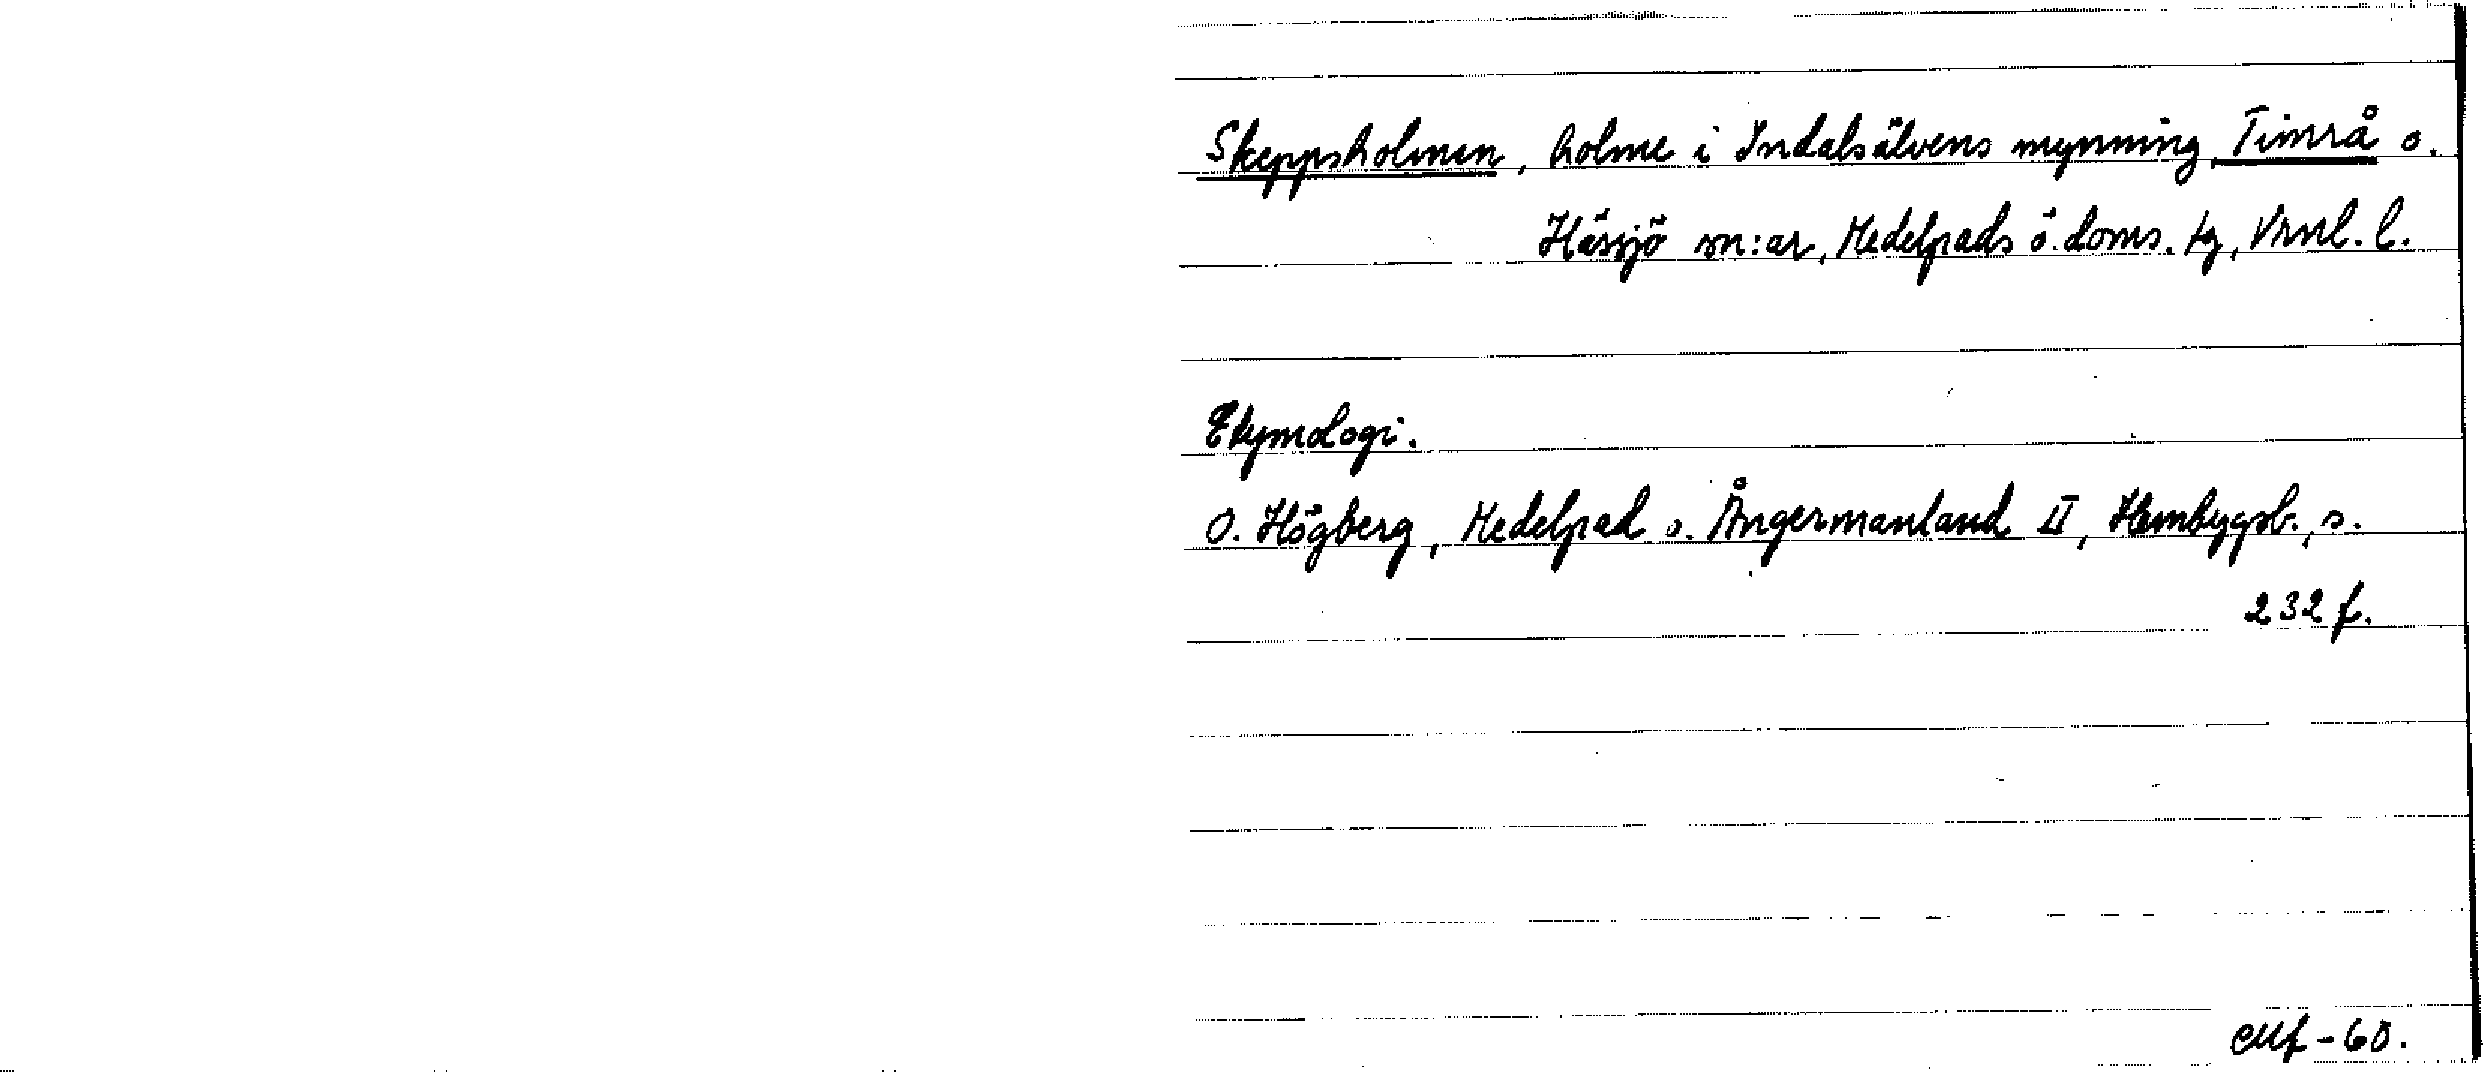 Skeppsholmen, holme i Indalsälvens mynning, Timrå o.
Hässjö sn:ar, Medelpads ö. doms. tg, Vrnl. l.
Etymologi.
O. Högberg, Medelpad o. Ångermanland II, Hembygsb., s.
232 f.
-60.